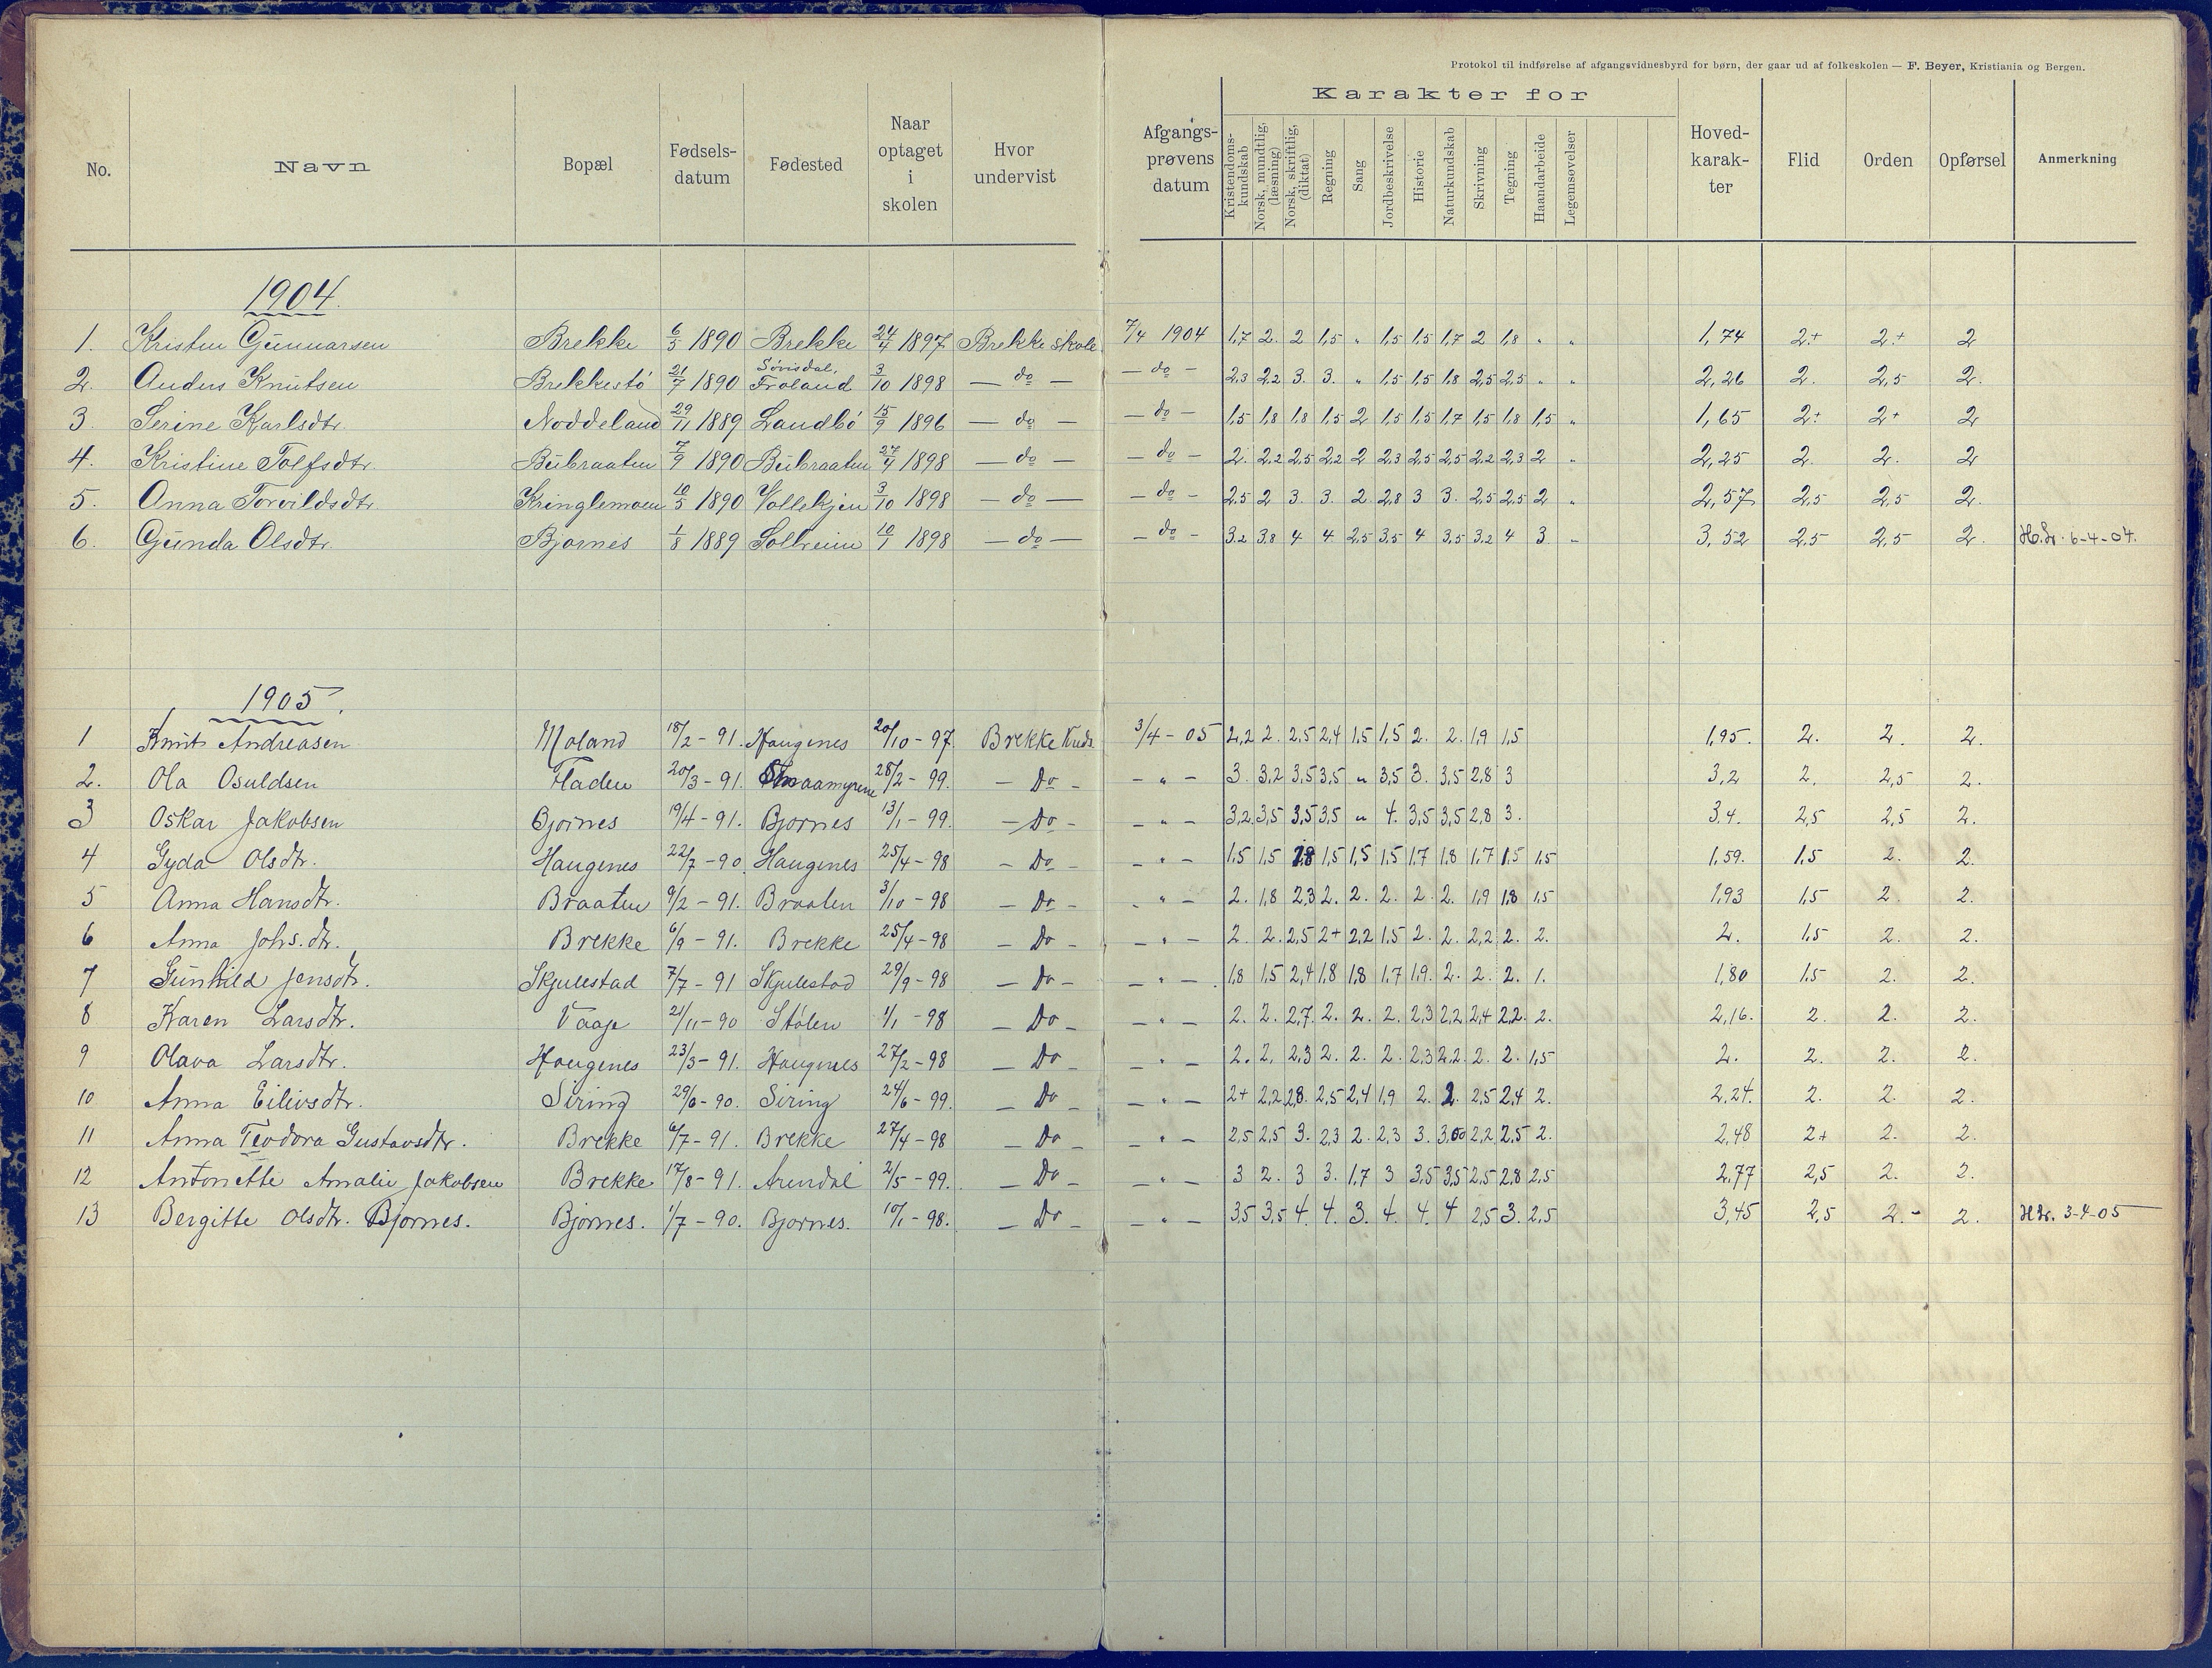 Protokol til indførelse af afgangsvidnesbyrd for børn, der gaar ud af folkeskolen — F. Beyer, Kristiania og Bergen.
No. Navn Bopæl Fødsels-datum Fødested Naar optaget i skolen Hvor undervist Afgangs-prøvens datum Karakter for Kristendoms-kundskab Norsk, mundtlig, (læsning) Norsk, skriftlig, (diktat) Regning Sang Jordbeskrivelse Historie Naturkundskab Skrivning Tegning Haandarbeide Legemsøvelser Hoved-karak-ter Flid Orden Opførsel Anmerkning
1904.
1. Kristen Gunnarsen Brekke 6/5 1890 Brekke 24/4 1897 Brekke skole 7/4 1904 1,7 2. 2 1,5 " 1,5 1,5 1,7 2 1,8 " " 1,74 2+ 2+ 2
2. Anders Knutsen Brekkestö 21/7 1890 Froland 3/10 1898 — do — — do — 2,3 2,2 3. 3. " 1,5 1,5 1,8 2,5 2,5 " " 2,26 2. 2,5 2.
3. Serine Karlsdtr. Noddeland 29/11 1889 Landbö 15/9 1896 — do — — do — 1,5 1,8 1,8 1,5 2 1,5 1,5 1,7 1,5 1,8 1,5 " 1,65 2+ 2+ 2
4. Kristine Tolfsdtr. Bubraaten 7/9 1890 Bubraaten 27/4 1898 — do — — do — 2. 2,2 2,5 2,2 2 2,3 2,5 2,5 2,2 2,3 2 " 2,25 2. 2. 2
5. Anna Torvildsdtr. Kringlemoen 10/5 1890 Vallekjen 3/10 1898 — do — — do — 2,5 2 3. 3. 2 2,8 3 3. 2,5 2,5 2 " 2,57 2,5 2,5 2.
6. Gunda Olsdtr. Bjornes 1/8 1889 Solreim 10/1 1898 — do — — do — 3,2 3,8 4 4 2,5 3,5 4 3,5 3,2 4 3 " 3,52 2,5 2,5 2. 6-4-04.
1905.
1 Knut Andreasen Moland 18/2 – 91. Haugenes 20/10 – 97 Brekke Kreds. 3/4 – 05 2,2 2. 2,5 2,4 1,5 1,5 2. 2. 1,9 1,5 1,95. 2. 2. 2.
2. Ola Osuldsen Fladen 20/3 – 91. Smaamyrene 28/2 – 99. — Do — — " — 3. 3,2 3,5 3,5 " 3,5 3. 3,5 2,8 3 3,2 2. 2,5 2.
3 Oskar Jakobsen Bjornes 19/4 – 91. Bjornes 13/1 – 99. — Do — — " — 3,2 3,5 3,5 3,5 " 4. 3,5 3,5 2,8 3. 3,4. 2,5 2,5 2.
4 Gyda Olsdtr. Haugenes 22/7 – 90. Haugenes 25/4 – 98 — Do — — " — 1,5 1,5 1,8 1,5 1,5 1,5 1,7 1,8 1,7 1,5 1,5 1,59. 1,5 2. 2.
5 Anna Hansdtr. Braaten 9/2 – 91. Braaten 3/10 – 98 — Do — — " — 2. 1,8 2,3 2. 2. 2. 2. 2. 1,9 1,8 1,5 1,93 1,5 2 2.
6 Anna Johs.dtr. Brekke 6/9 – 91. Brekke 25/4 – 98 — Do — — " — 2. 2. 2,5 2+ 2,2 1,5 2. 2. 2,2 2. 2. 2. 1,5 2. 2.
7 Gunhild Jensdtr. Skjulestad 7/7 – 91 Skjulestad 29/9 – 98 — Do — — " — 1,8 1,5 2,4 1,8 1,8 1,7 1,9. 2. 2. 2. 1. 1,80 1,5 2. 2.
8 Karen Larsdtr. Vaaje 21/11 – 90 Stólen 1/1 – 98 — Do — — " — 2. 2. 2,7. 2. 2. 2. 2,3 2,2 2,4 2,2. 2. 2,16. 2. 2. 2.
9 Olava Larsdtr. Haugenes 23/3 – 91. Haugenes 27/2 – 98 — Do — — " — 2. 2. 2,3 2. 2. 2. 2,3 2,2. 2. 2. 1,5 2. 2. 2. 2.
10 Anna Eilivsdtr. Siring 29/6 – 90. Siring 24/6 – 99. — Do — — " — 2+ 2,2 2,8. 2,5 2,4 1,9 2. 2. 2,5 2,4 2. 2,24. 2. 2. 2.
11 Anna Teodora Gustavsdtr. Brekke 6/7 – 91. Brekke 27/4 – 98 — Do — — " — 2,5 2,5 3. 2,3 2. 2,3 3. 3,00 2,2 2,5 2. 2,48 2+ 2. 2.
12 Antonette Amalie Jakobsen Brekke 17/8 – 91. Arendal 2/5 – 99. — Do — — " — 3 2. 3 3. 1,7 3 3,5 3,5 2,5 2,8 2,5 2,77 2,5 2. 2.
13 Bergitte Olsdtr. Bjornes. Bjornes. 1/7 – 90. Bjornes. 10/1 – 98. — Do — — " — 3,5 3,5 4. 4. 3. 4. 4. 4 2,5 3. 2,5 3,45 2,5 2.- 2. 3-4-05